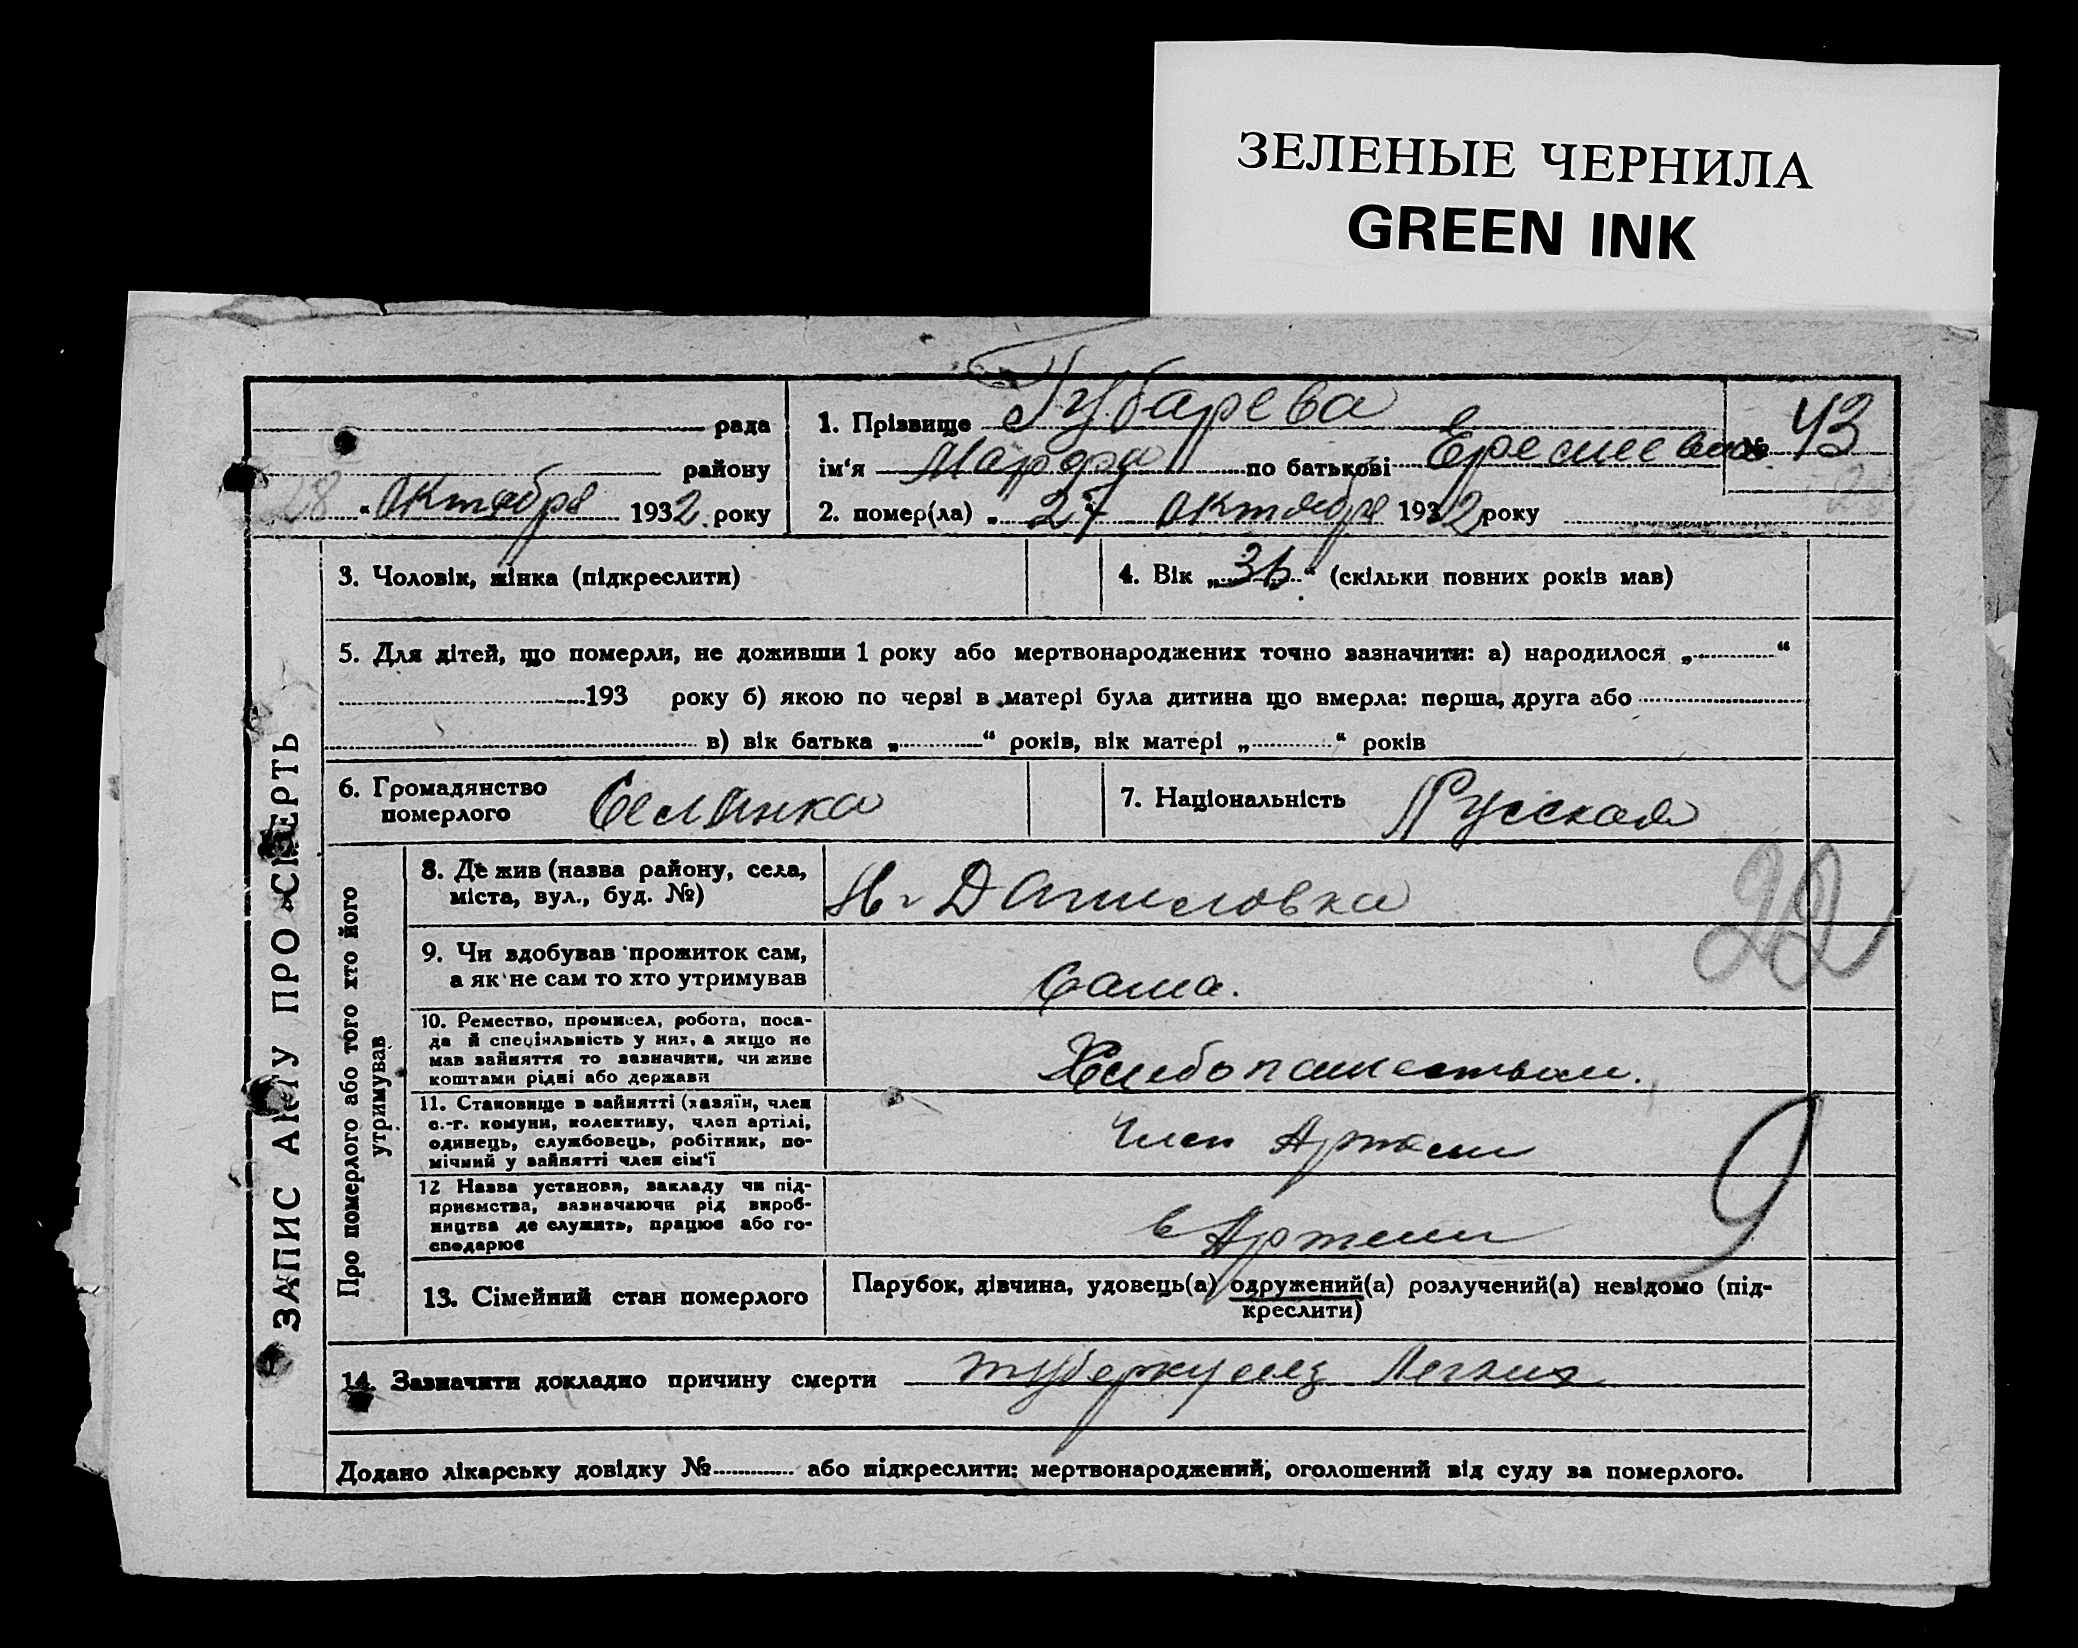 ЗЕЛЕНЫЕ ЧЕРНИЛА
GREEN INK
рада
району
28 “ Октября 1932 року
1. Прізвище Губарева
ім‘я Марфа по батькові Еремеевна № 43
2. помер(ла) „ 27 Октября 1932 року
ЗАПИС АКТУ ПРО СМЕРТЬ
3. Чоловік, жінка (підкреслити)
4. Вік „ 36 “ (скільки повних років мав)
5. Для дітей, що померли, не доживши 1 року або мертвонароджених точно зазначити: а) народилося „ “
193 року б) якою по черві в матері була дитина що вмерла: перша, друга або
в) вік батька „ “ років, вік матері „ “ років
6. Громадянство
померлого Селянка
7. Національність Русская
Про померлого або того хто його
утримував
8. Де жив (назва району, села,
міста, вул., буд. №) Н-Даниловка
22
9. Чи здобував прожиток сам,
а як не сам то хто утримував Сама.
10. Ремество, промисел, робота, поса-
да й спеціяльність у них, а якщо не
мав зайняття то зазначити, чи живе
коштами рідні або держави
Хлебопашеством.
11. Становище в зайнятті (хазяїн, член
с.-г. комуни, колективу, член артілі,
одинець, службовець, робітник, по-
мічний у зайнятті член сім‘ї
Член Артели
9
12 Назва установи, закладу чи під-
приємства, зазначаючи рід вироб-
ництва де служить, працює або го-
сподарює
в Артели
13. Сімейний стан померлого
Парубок, дівчина, удовець(а) одружений(а) розлучений(а) невідомо (під-
креслити)
14. Зазначити докладно причину смерти туберкулез Легких
Додано лікарську довідку № або підкреслити: мертвонароджений, оголошений від суду за померлого.